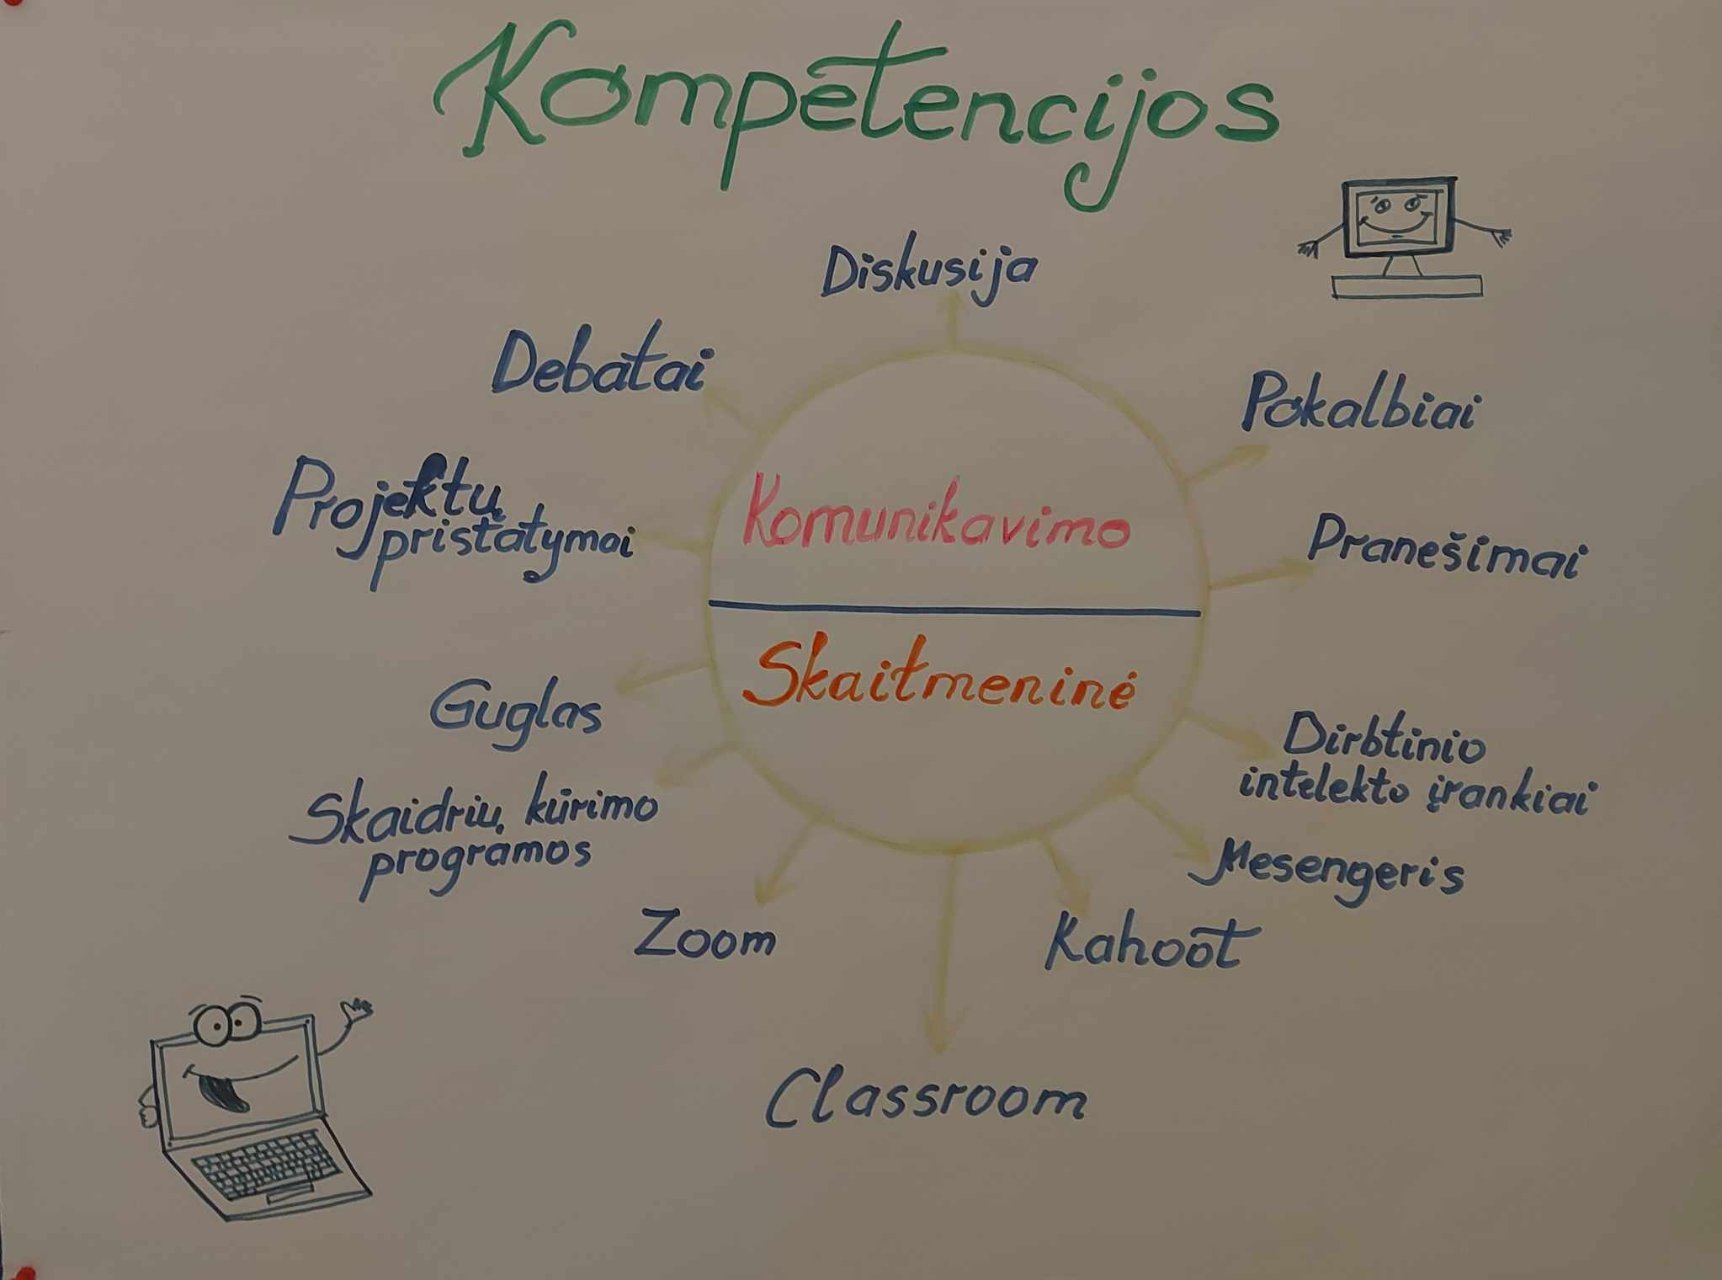 Kompetencijos
Diskusija
Debatai
Pokalbiai
Projektų
pristatymai
Komunikavimo
Pranešimai
Skaitmeninė
Guglas
Dirbtinio
intelekto įrankiai
Skaidrių kūrimo
programos
Mesengeris
Zoom
Kahoot
Classroom